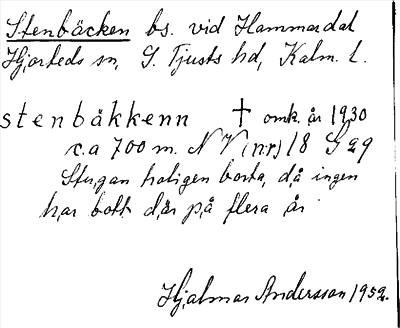 Stenbäcken bs. vid Hammardal
Hjorteds sn, S. Tjusts hd, Kalm. l.
stenbäkkenn † omk. år 1930
c.a 700 m. N V (nr) 18 G 29
Stugan troligen borta, då ingen
har bott där på flera år
Hjalmar Andersson 1952.